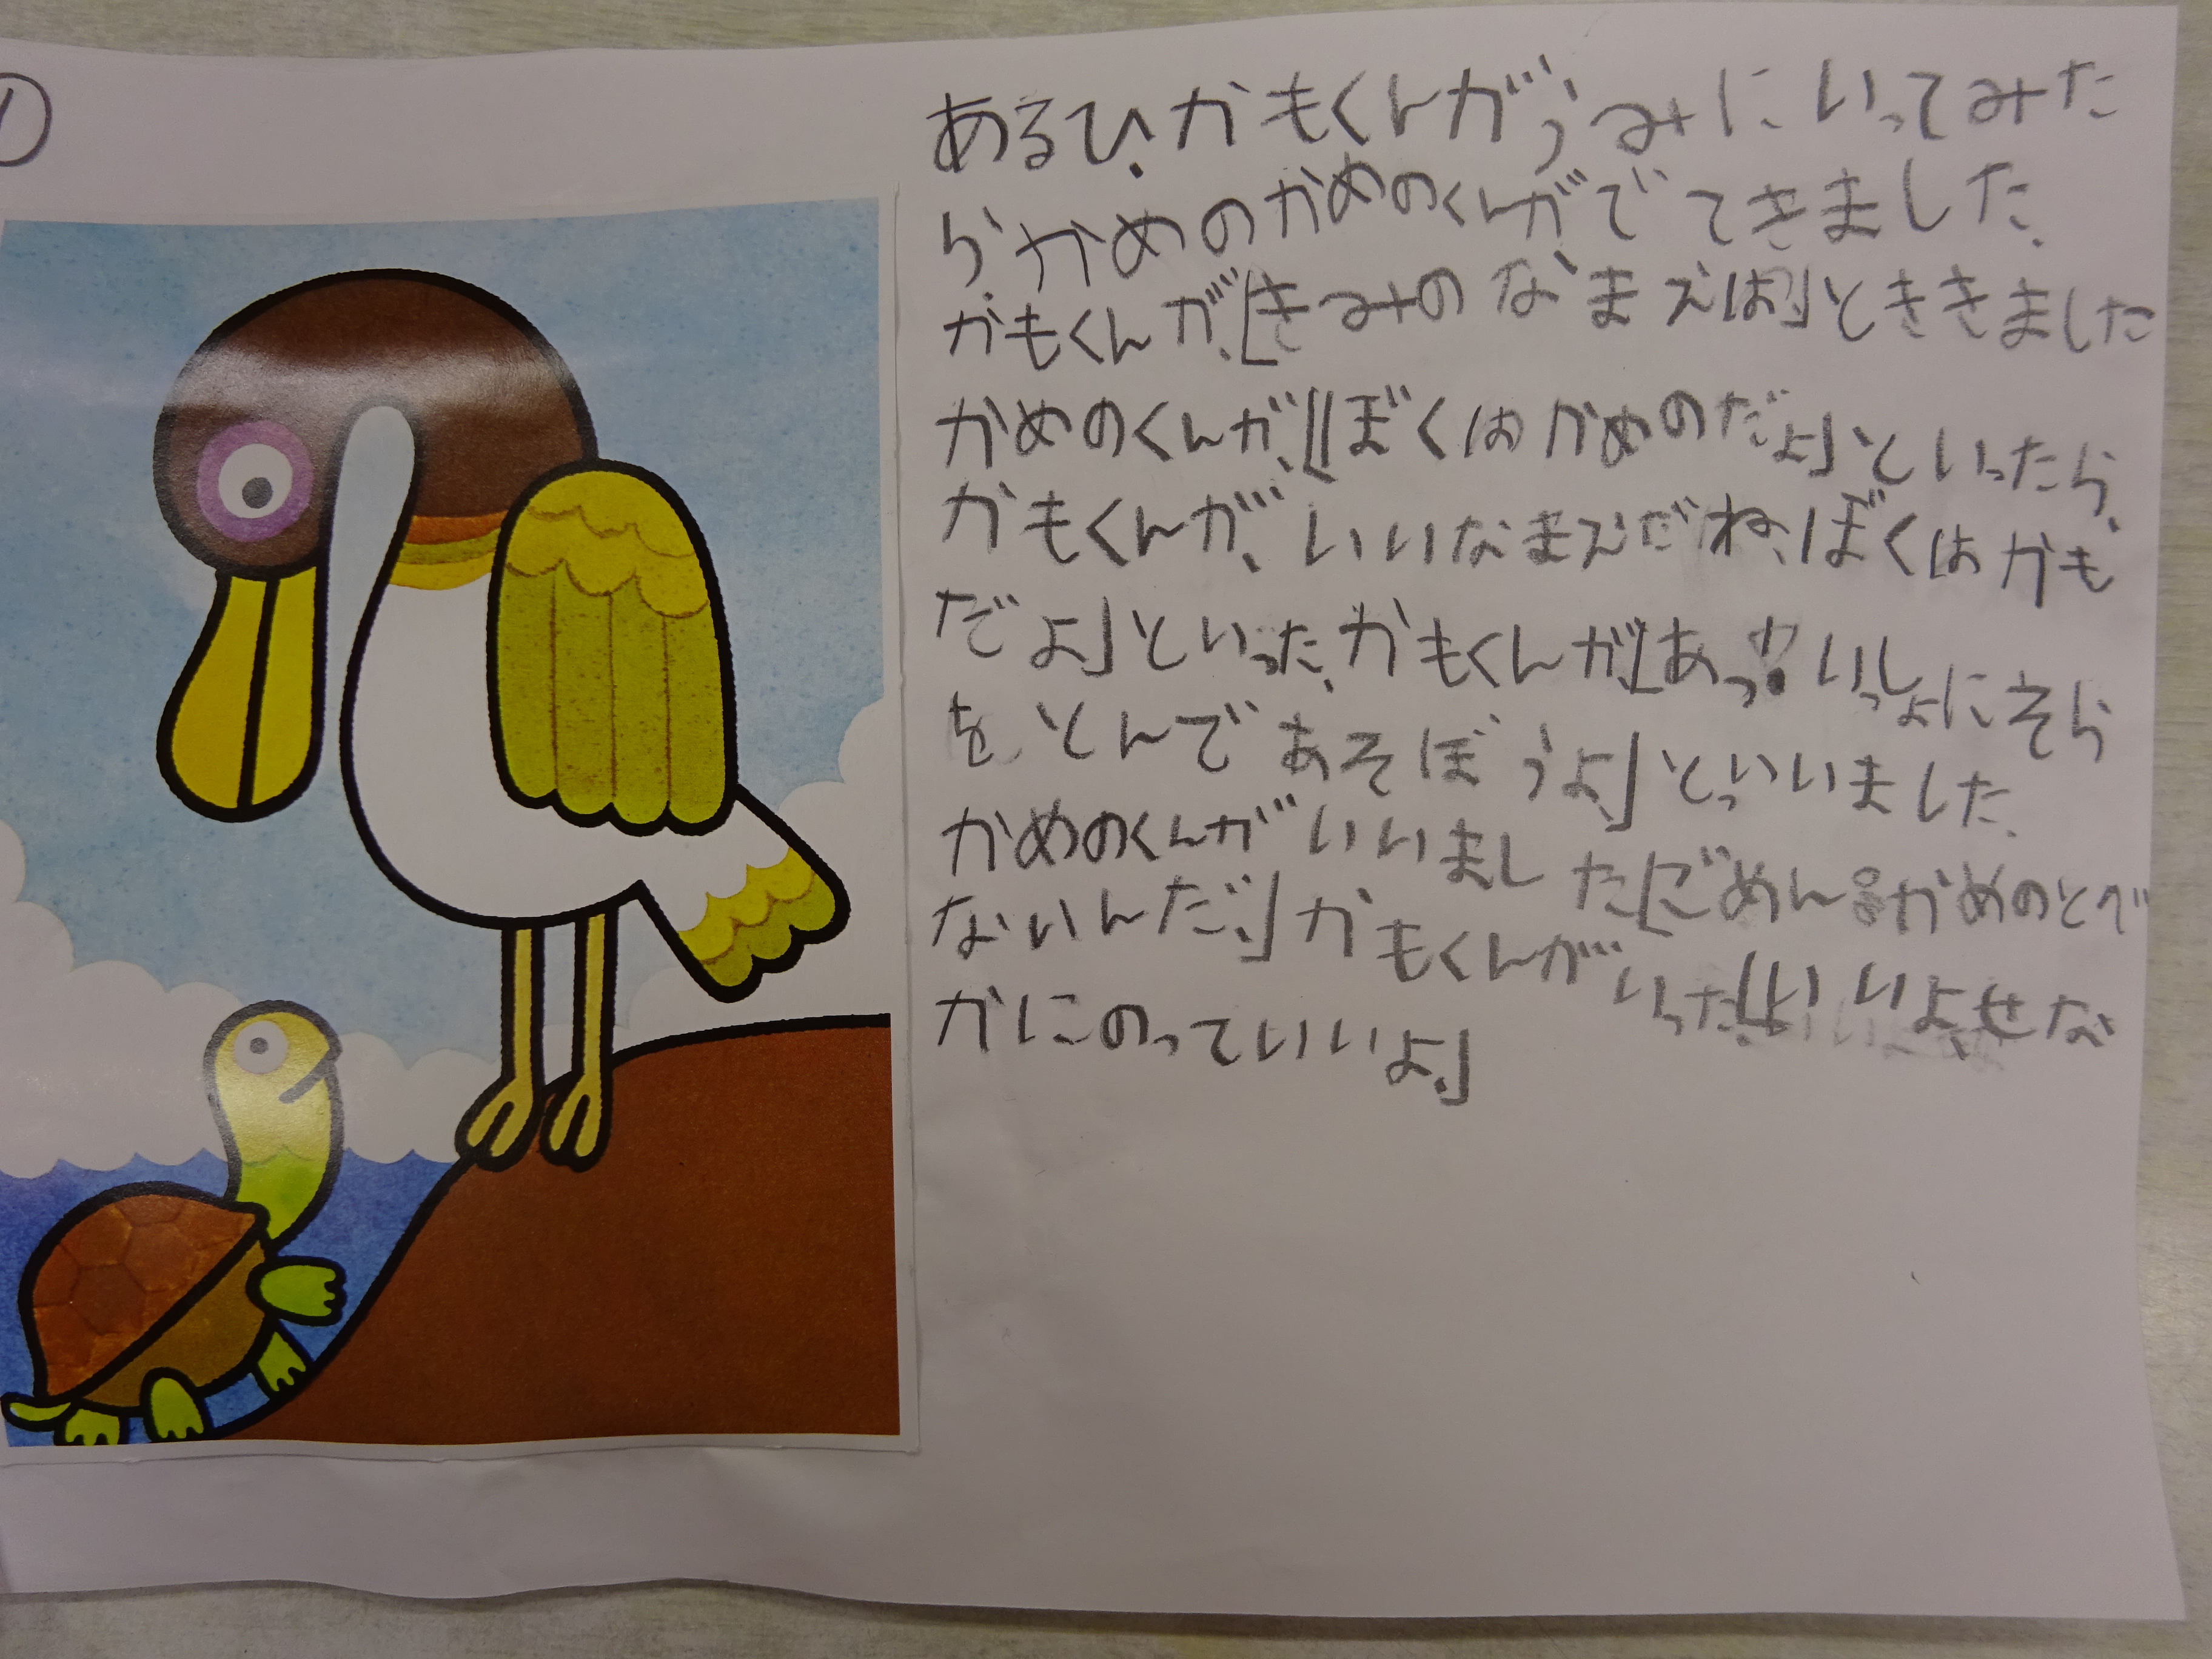 ①
あるひ、かもくんがうみにいってみた
ら、かめのかめのくんがでてきました、
かもくんが、「きみのなまえは?」とききました
かめのくんが、「ぼくはかめのだよ」といったら、
かもくんが、いいなまえだね、ぼくはかも
だよ」といった、かもくんが、「あっ!いっしょにそら
を、とんであそぼうよ、」とっいいました、
かめのくんがいいました「ごめんかめのとべ
ないんだ、」かもくんがいった、「いいよ、せな
かにのっていいよ、」